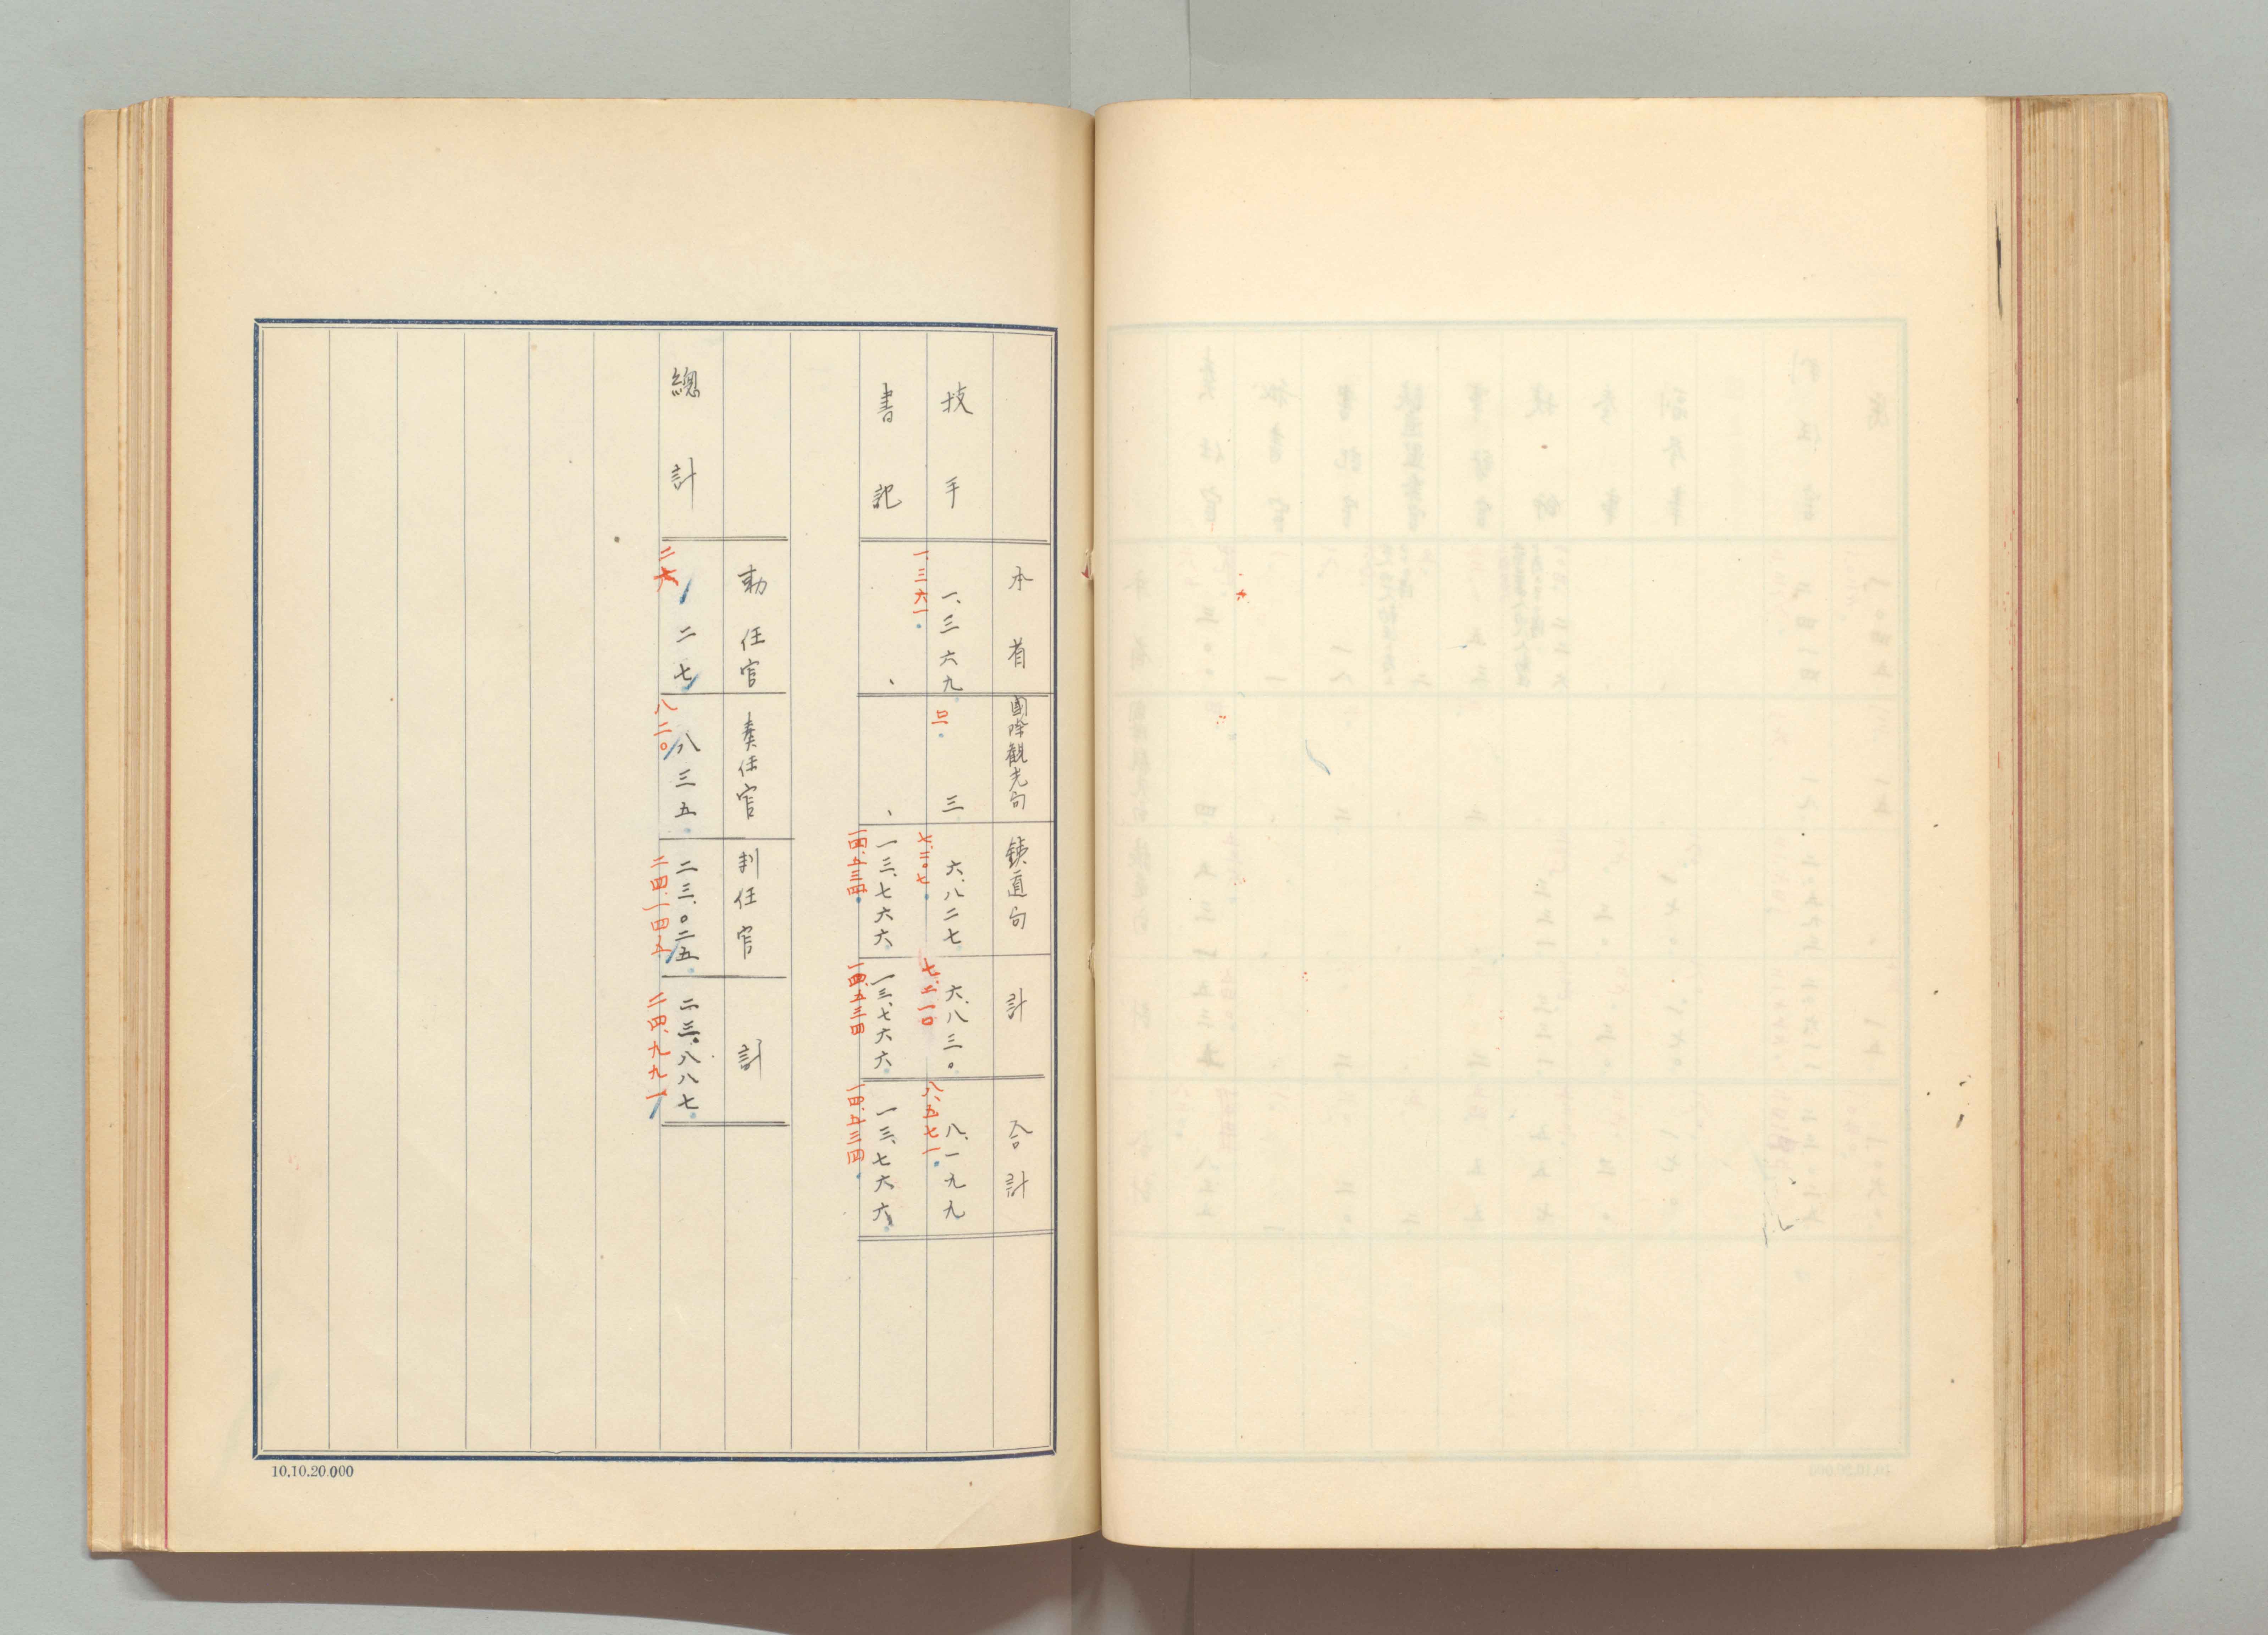 本省 國際觀光局 鐵道局 計 合計
技手 一、三六九 三 六、八二七 六、八三〇 八、一九九
一、三六一 七、二〇七 七、二一〇 八、五七一
書記 、 、 一三、七六六 一三、七六六 一三、七六六
一四、五三四 一四、五三四 一四、五三四
勅任官 奏任官 判任官 計
總計 二七 八三五 二三、〇二五 二三、八八七
二六 八二〇 二四、一四五 二四、九九一
10.10.20.000